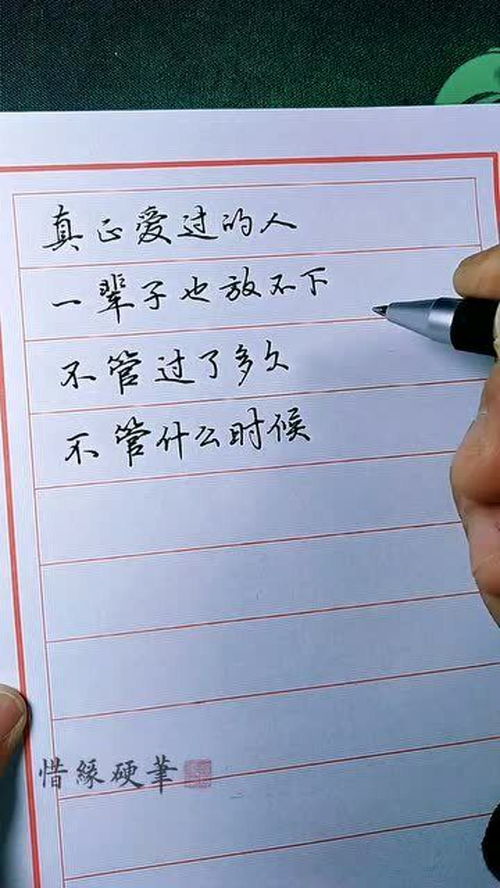 真正爱过的人
一辈子也放不下
不管过了多久
不管什么时候
惜緣硬筆